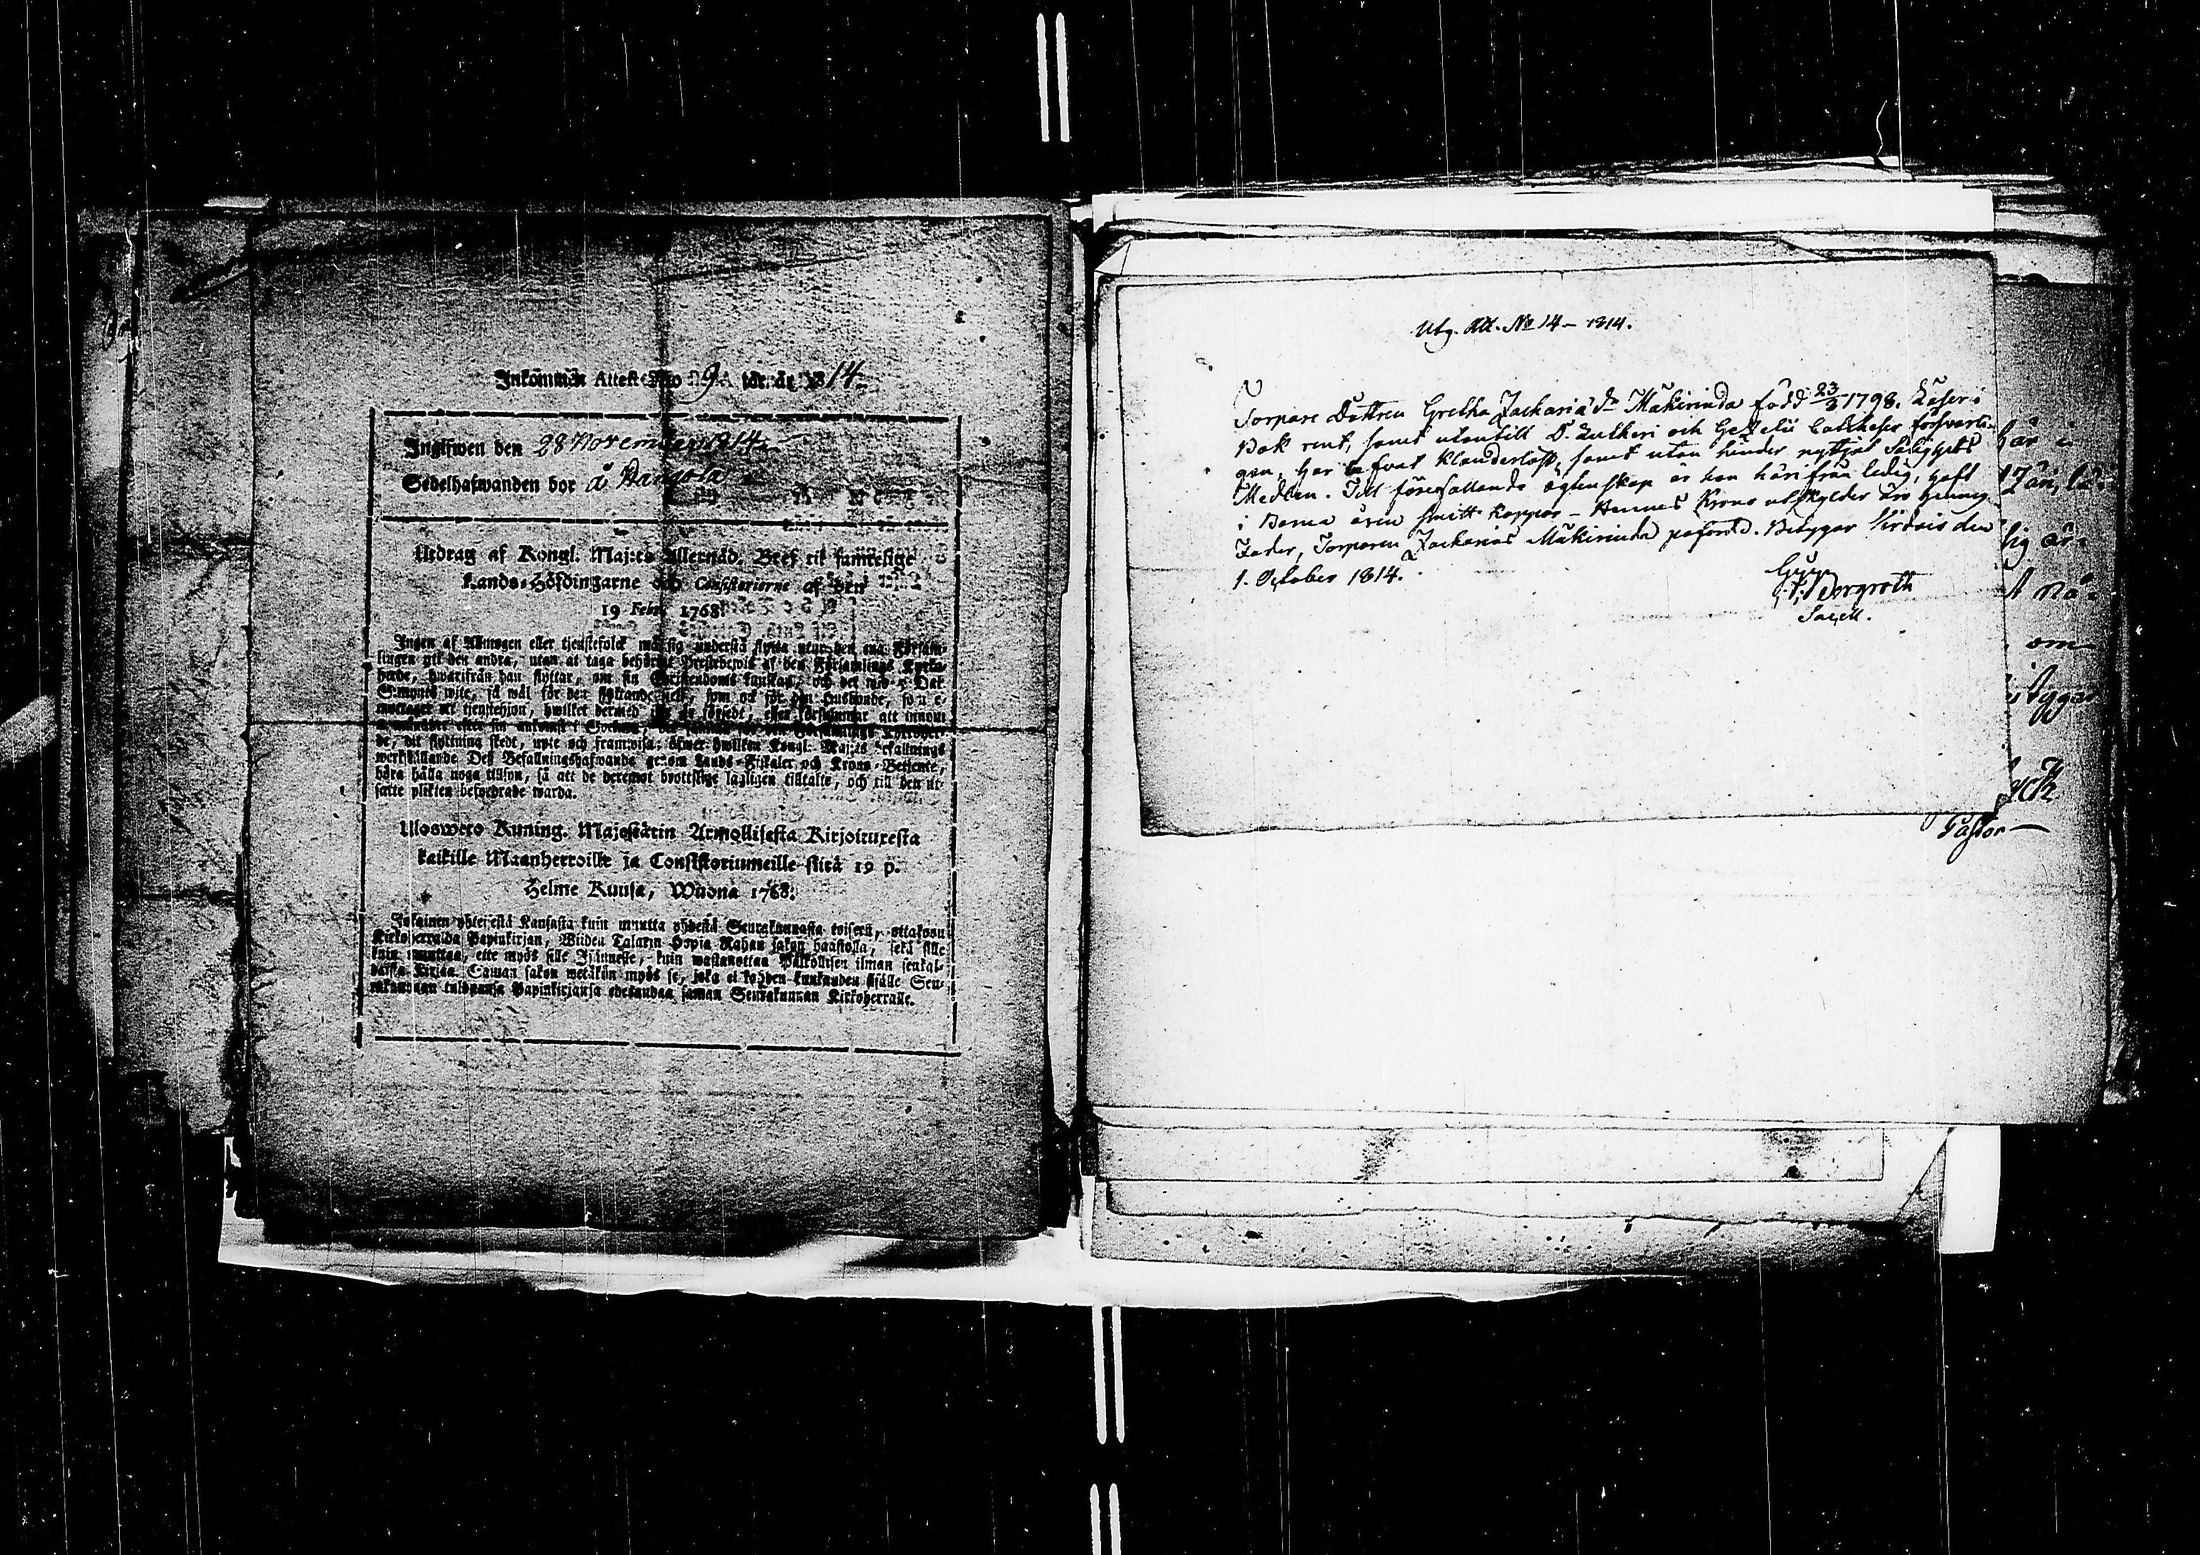 Inkommen Attest No 9 för år 1814
Ingifwen den 28 November 1814
Sedelhafwanden bor å Dangola
Utdrag af Kongl. Maj:ts Allernåd. Bref til samtelige
Lands-Höfdingarne och Consistorierne af den
19 Febr. 1768.
Ingen af Allmogen eller tjenstefolck må sig understå flytta utur den ena Försam-
lingen til den andra, utan at taga behörigt Prestebewis af den Församlings Kyrko-
herde, hwarifrån han flyttar, om sin Christendoms kunskap, och det wid 5 Dal.
S:mynts wite, så wäl för den flyttande sielf, som ock för den Husbonde, som e-
mottager et tjenstehjon, hwilket dermed ej är försedt, eller försummar att innom
de, dit flyttning skedt, upte och framwisa; öfwer hwilken Kongl. Maj:ts befallnings
werkställande Des Befallningshafwande genom Lands-Fiskaler och Krono-Betjente,
böra hålla noga tilsyn, så att de deremot brottslige lagligen tilltalte, och till den ut-
satte plikten befordrade warda.
Ulosweto Kuning. Majestätin Armollisesta Kirjoituxesta
kaikille Maanherroille ja Consistoriumeille siitä 19 p.
Helme Kuusa, Wuona 1768.
Jokainen yhteisestä Kansasta kuin muutta yhdestä Seurakunnasta toiseen, ottakoon
Kirkoherralda Papinkirjan, Wiiden Talarin Hopia Rahan sakon haastolla, sekä sille
kuin muuttaa, ette myös sille Isännelle, kuin wastanottaa Palkollisen ilman senkal-
daista Kirjaa. Saman sakon wetäkön myös se, joka ei kahden kuukauden sisälle Seu-
rakundaan tulduansa Papinkirjansa edesandaa saman Seurakunnan Kirkoherralle.
Utg. Att. No 14 – 1814.
Torpare Dottren Gretha Zacharia Dr Mäkirinda född 23/3 1798. Läser i
Bok rent, samt utantill D. Lutheri och Gezelii Catheses försvarli-
gen, har lefvat klanderlöst, samt utan hinder nyttjat Saliggjets
Medlen. Till förefallande ägtenskap är hon härifrån ledig, haft
i Barna åren smitt koppor – Hennes Krono utskylder äro hennes
Fader, Torparen Zacharias Mäkirinda påförd. Betygar Virdois den
1. October 1814.
Bergroth
Sacell.
här i
om
Pastor